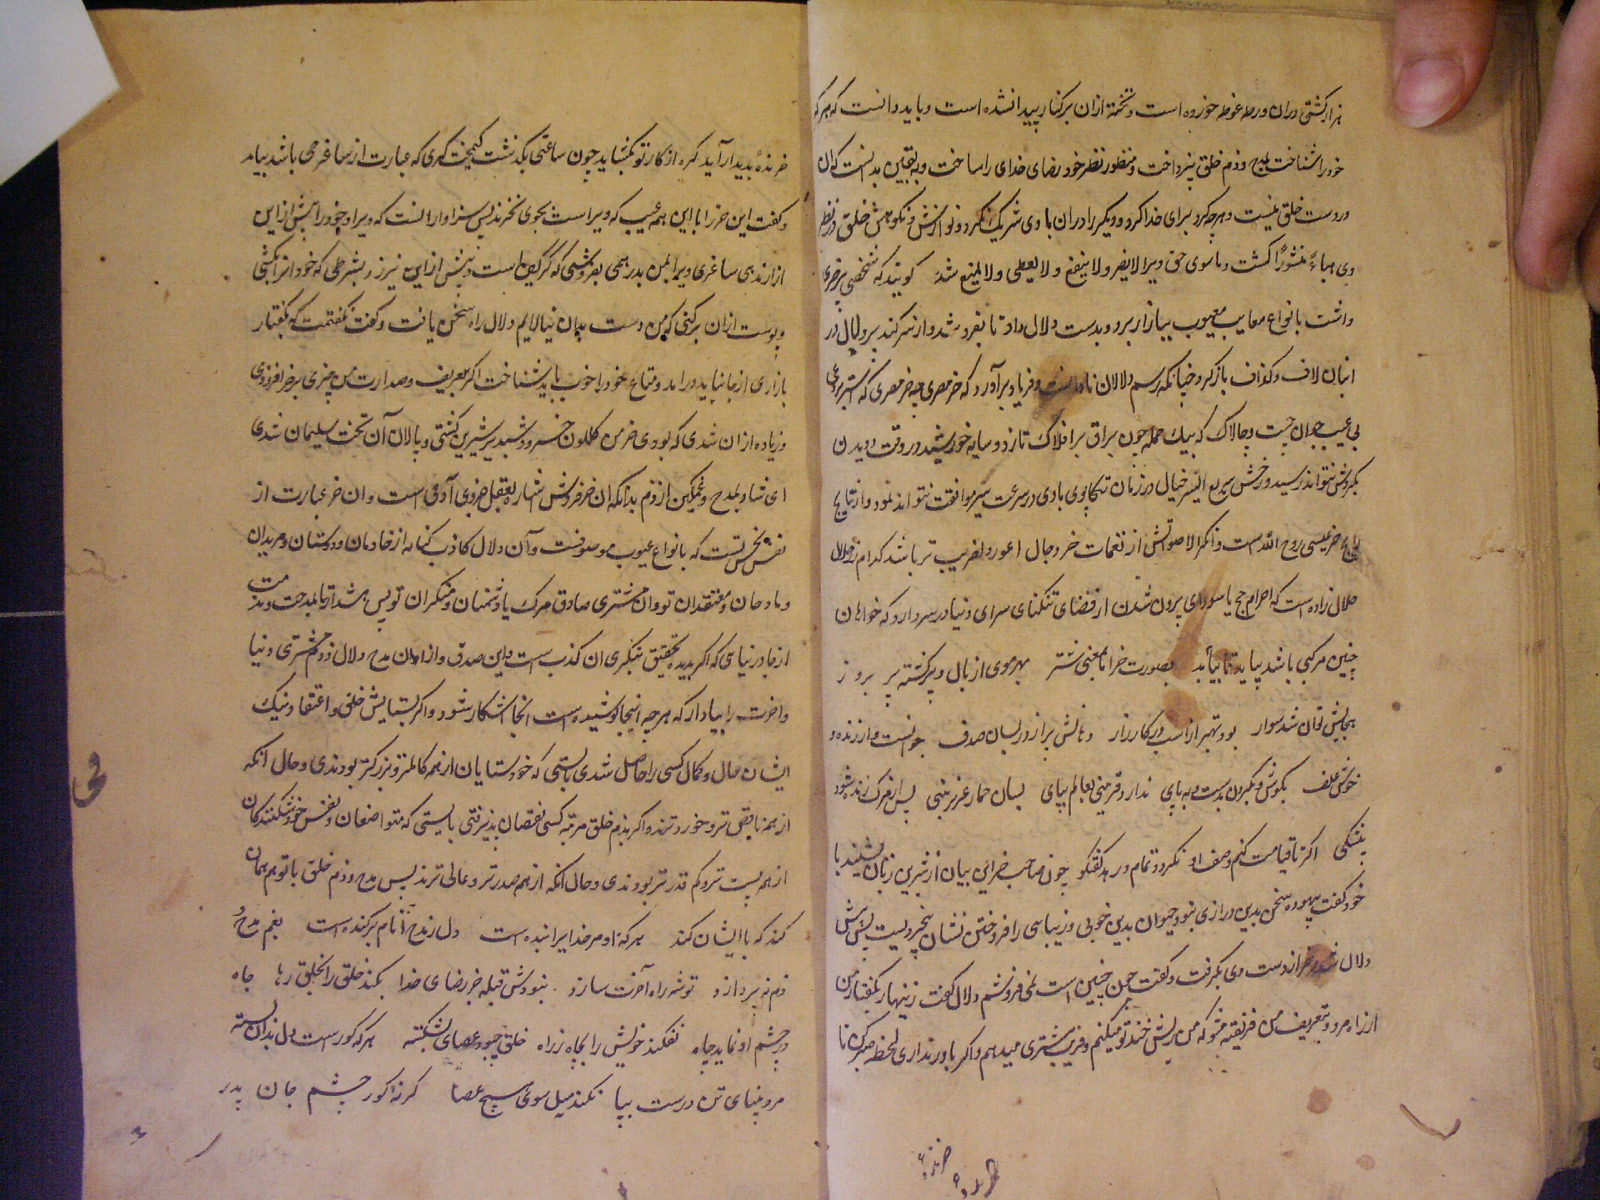 هزار کشتی دران ورطه غوطه خورده است و تخته ازان برکنار پیدا نشده است و باید دانست که هرکه
خود را شناخت بمدح و ذم خلق نپرداخت و منظور نظر خود رضای خدای را ساخت و بیقین بدانست که ان
در دست خلق نیست و هرچه کرد برای خدا کرد و دیگر را دران با وی شریک نکرد و نوازش و نکوهش خلق در نظر
وی هباءً منثوراً گشت و ما سوی حق ویرا لا یضر ولا ینفع ولا یعطی ولا یمنع شد گویند که شخصی خری
داشت بانواع معایب معیوب ببازار برد و بدست دلال داد تا بفروشد و از سر کند دلال در
انبان لاف و گزاف باز کرد چنانکه رسم دلالان و فریاد برآورد که خر مصری چه خر مصری که
بی عیب جوان چست و چالاک که بیک حمله چون براق بر افلاک تازد و سایه خورشید در وقت دویدن
بگردش نتواند رسید و رخش سریع السیر خیال در زمان تکاپوی با وی در سرعت سیر موافقت نتواند نمود و از نتایج
خر عیسی روح الله است و انکر الاصواتش از نغمات خر دجال اعور دلفریب تر باشد کدام
حلال زاده است که احرام حج یا سودای بیرون شدن از فضای تنگنای سرای دنیا در سر دارد که خواهان
چنین مرکبی باشد بیاید تا بیابد بصورت خر اما بمعنی شتر بهر موی از بال و پر گشته پر بروز
بجایش توان شد سوار بود بهتر از اسب در کارزار دهانش پر از در بسان صدف
خوش علف بگوش و بگردن بدست و بپای ندارد قرینی بعالم بپای بسان حمار عزیر نبی پس از مرگ زنده شود
اگر تا قیامت کنم وصف او نگردد تمام در گفتگو چون صاحب خر این بیان از شیرین زبان بشنید با
خود گفت بیهوده سخن بدین درازی نبود حیوان بدین خوبی و زیباسی را فروختن نشان بیخردیست پیش
دلال از دست وی بگرفت و گفت چون چنین است نمی فروشم دلال گفت زینهار بگفتار من
از راه مرو و بتعریف من فریفته مشو که من ریش خند تو میکنم و فریب مشتری میدهم و اگر باور نداری لحظه صبر کن تا
خرنده
خرنده پدیدار آید گره از کار تو بگشاید چون ساعتی بگذشت که عبارت از ساغری باشد بیامد
و گفت این خر را با این همه عیب که ویراست بجوی نخرند پس سزاوار انست که ویرا و خود را بیش ازین
ازار ندهی ساغری ویرا بمن بدرهمی بفروشی که است و بیش ازین نیرزد بشرطی که خود انرا بکشی
و پوست ازان برکنی که من دست بدان نیالایم دلال راه سخن یافت و گفت نگفتمت که بگفتار
بازاری از جا نباید در آمد و متاع خود را خوب باید شناخت اگر بتعریف و صد ارت من چیزی بر خر افزودی
و زیاده ازان شدی که بودی خر من گلگون خسرو و شبدیز شیرین گشتی و پالان آن تخت سلیمان شدی
ای شاد بمدح و غمگین از ذم بدانکه ان خر فروش اشاره بعقل جزوی آدمی است و ان خر عبارت از
نفس نحس تست که بانواع عیوب موصوفست و آن دلال کاذب کنایه از خادمان و دوستان و مریدان
و مادحان و معتقدان تو و ان مشتری صادق مرگ یا دشمنان و منکران تو پس هشدار تا بمدحت و مذمت
از جا در نیایی که اگر بدیده تحقیق بنگری ان کذب است و این صدق و ازان مدح دلال و ذم مشتری دنیا
و اخرت را بیاد ار که هرچه اینجا پوشیده است انجا اشکار شود و اگر بستایش خلق و اعتقاد نیک
ایشان مال و کمال کسی را حاصل شدی بایستی که خودستایان از همه کاملتر و بزرگتر بودندی و حال آنکه
از همه ناقص تر و خورد ترند و اگر بذم خلق مرتبه کسی نقصان پذیرفتی بایستی که متواضعان و نفس خود شکنندگان
از همه پست تر و کم قدرتر بودندی و حال انکه از همه صدرتر و عالی ترند پس مدح و ذم خلق با تو هم همان
کند که با ایشان کند هرکه او مر خدایرا بنده است دل ز مدح انام برکنده است بغم مدح و
ذم نپردازد توشه راه آخرت سازد نبودش قبله جز رضای خدا بکند خلق را بخلق رها جاه
در چشم او نماید چاه نفکند خویش را بچاه ز راه خلق چون عصای بشکسته هرکه کورست دل بدان بسته
مرد بینای تن درست بپا نکند میل سوی هیچ عصا گرنه کور چشم جان پدر